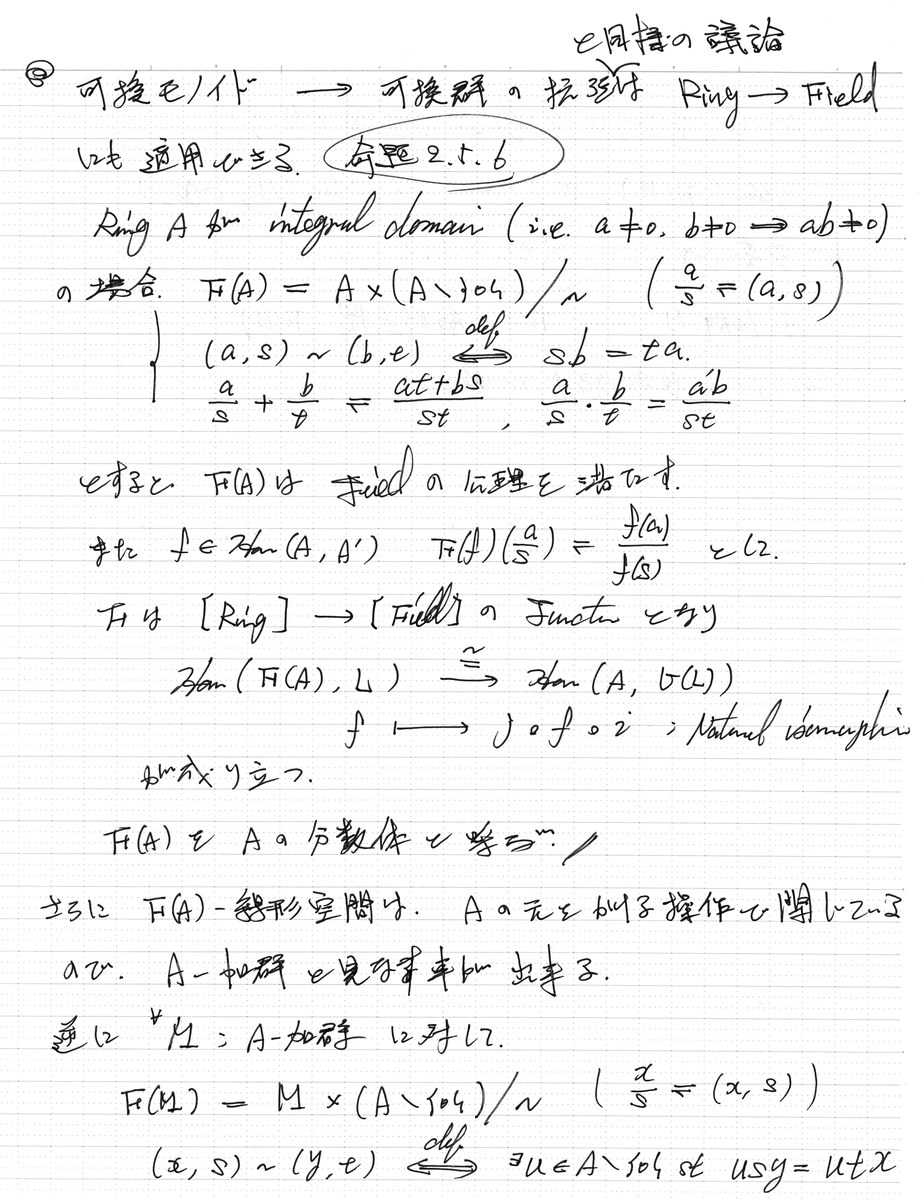 と同様の議論
◎ 可換モノイド → 可換群の拡張は Ring → Field
にも適用できる. 命題2.5.6
Ring A が integral domain (i.e. a≠0, b≠0 ⟹ ab≠0)
の場合. F(A) = A×(A\{0})/~ (a/s ≒ (a,s))
(a,s) ~ (b,t) ⟺def. sb = ta.
a/s + b/t ≒ (at+bs)/st , a/s・b/t = ab/st
とすると F(A)は Field の公理を満たす.
また f∈Hom(A,A') F(f)(a/s) ≒ f(a)/f(s) とした.
F は [Ring] → [Field] の Functor となり
Hom(F(A), L) ≅→ Hom(A, U(L))
f ⟼ j∘f∘i ; Natural isomorphi
が成り立つ.
F(A) を A の分数体と呼ぶ.
さらに F(A)-線形空間は. A の元をかける操作で閉じている
ので. A-加群と見なす事が出来る.
逆に ∀M ; A-加群に対して.
F(M) = M×(A\{0})/~ (x/s ≒ (x,s))
(x,s) ~ (y,t) ⟺def. ∃u∈A\{0} st usy = utx